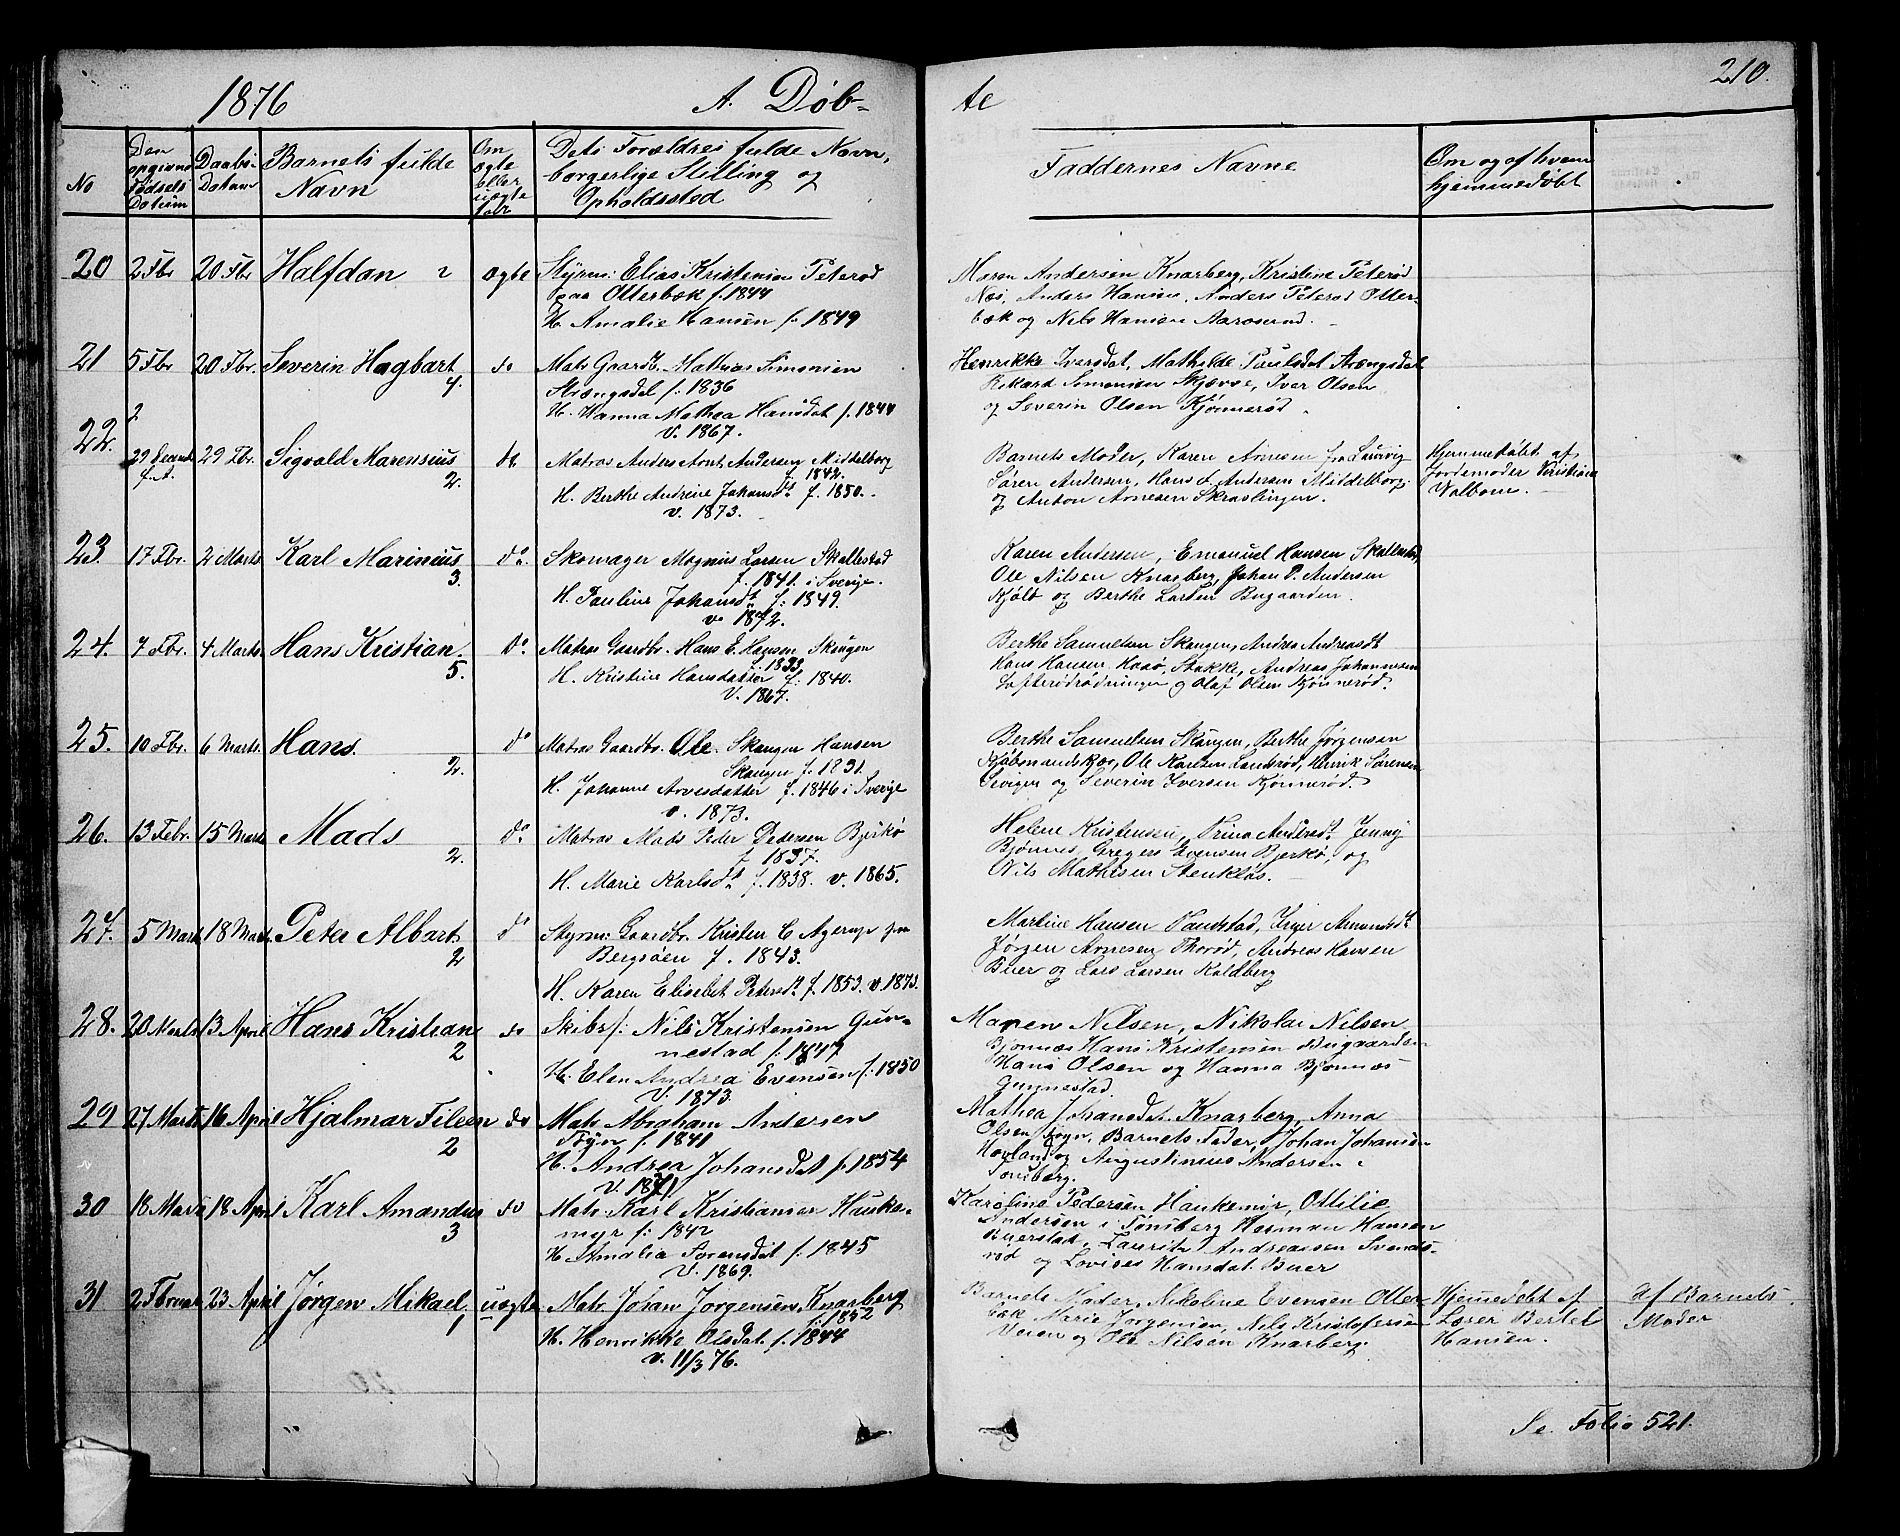 1876
A. Døb-
te
210.
No
Den opgivne Fødsels Datum
Daabs- Datum
Barnets fulde Navn
Om ægte eller uægte født
Dets Forældres fulde Navn, borgerlige Stilling og Opholdssted
Faddernes Navne
Om og af hvem hjemmedøbt
20 2 Fbr 20 Fbr Halfdan 2 ægte Styrm: Elias Kristensen Peterød
paa Otterbæk f. 1844
H. Amalie Hansen f. 1849
Maren Andersen Knarberg, Kristine Peterød
Næs, Anders Hansen, Anders Peterød Otter-
bæk og Nils Hansen Aarøsund.
21 5 Fbr 20 Fbr. Severin Hagbart 4. do Matr Gaardb. Mathias Simonsen
Strængsdal f. 1836
H. Hanna Mathea Hansdat f. 1844
V. 1867.
Henrikke Iversdat, Mathilde Paulsdat Strængsdal
Rikard Simonsen Skjævve, Iver Olsen
og Severin Olsen Kjønnerød
22. 29 29 Fbr. Sigvald Marensius 2. do Matros Anders Arnt Andersen Middelborg
f. 1842.
H. Berthe Andrine Johansdt f. 1850.
v. 1873.
Barnets Moder, Karen Arnesen fra Laurvig
Søren Andersen, Hans A Andersen Middelborg
og Anton Arnesen Skraslingen.
Hjemmedøbt af
Jordemoder Kristiane
Valbom.
23. 17 Fbr. 2 Marts Karl Marinius 3. do. Skomager Magnus Larsen Skallestad
f. 1841. i Sverige.
H. Pauline Johansdt f. 1849.
v. 1872.
Karen Andersen, Emanuel Hansen Skallestad,
Ole Nilsen Knarberg, Johan P. Andersen
Kjøle og Berthe Larsen Bugaarden.
24. 7 Fbr. 4 Marts. Hans Kristian. 5. Do. Matros Gaardbr. Hans E. Hansen Skaugen
f. 1833
H. Kristine Hansdatter f. 1840.
V. 1867.
Berthe Samuelsen Skaugen, Andrea Andreasdt
Hans Hansen, Hasø, Stokke, Andreas Johannesen
Lofterødrødningen og Olaf Olsen Kjønnerød.
25. 10 Fbr. 6 Marts. Hans. 2. do Matros Gaardbr. Ole Skaugen Hansen
Skaugen f. 1831.
H. Johanne Arvesdatter f. 1846 i Sverige
v. 1873.
Berthe Samuelsen Skaugen, Berthe Jørgensen
Kjøbmandskjær, Ole Karlsen Landerød, Henrik Sørensen
Sevigen og Severin Iversen Kjønnerød.
26. 13 Febr. 15 Marts Mads 2. do. Matros Mads Peder Pedersen Bjerkø
f. 1837.
H. Marie Karlsdt f. 1838. v. 1865.
Helene Kristensen, Trina Andersdt Jenny
Bjønnes, Gregers Evensen Bjerkø, og
Nils Mathisen Stenkløs.
27. 5 Marts 18 Marts. Peter Albart 2 do Styrm: Gaardbr. Kristen C Agerup paa
Bergsøen f. 1843.
H. Karen Elisebet Petersdt f. 1853. v. 1873.
Martine Hansen Vandstad, Inger Amundsdt
Jørgen Arnesen Thorød, Andreas Hansen
Buer og Lars Larsen Koldberg
28. 20 Marts 13 April Hans Kristian 2 do Skibsf: Nils Kristensen Gun-
nestad f. 1847
H. Elen Andrea Evensen f. 1850
V. 1873.
Maren Nilsen, Nikolai Nilsen
Bjønnæs Hans Kristensen Bugaarden
Hans Olsen og Hanna Bjønnæs
Gunnestad.
29 27 Marts 16 April Hjalmar Fileen 2 do Matr Abraham Andersen
Føyn f. 1841
H. Andrea Johansdat f. 1854
V. 1871.
Mathea Johansdat. Knarberg, Anna
Olsen Føyn, Barnets Fader, Johan Johansen
Hovland og Augustinius Andersen
Tønsberg.
30 18 Marts 18 April Karl Amandus 3 do Matr Karl Kristiansen Hauke-
myr f. 1842
H. Amalia Sørensdat f. 1845
V. 1869.
Karoline Pedersen Haukemyr, Ottilie
Andersen i Tønsberg Herman Hansen
Buerstad, Lauritz Andreassen Svends-
rød og Lovises Hansdat. Buer
31 2 Februar 23 April Jørgen Mikael, 1 uægte Matr Johan Jørgensen, Knarberg
f. 1852
H. Henrikke Olsdat f. 1844
v. 11/3 76.
Barnets Moder, Nikoline Evensen Otter-
bæk Marie Jørgensen, Nils Kristofersen
Veien og Ole Nilsen Knarberg.
Hjemmedøbt af
Lærer Bertel
Hansen.
af Barnets
Moder
Se. Folio 521.